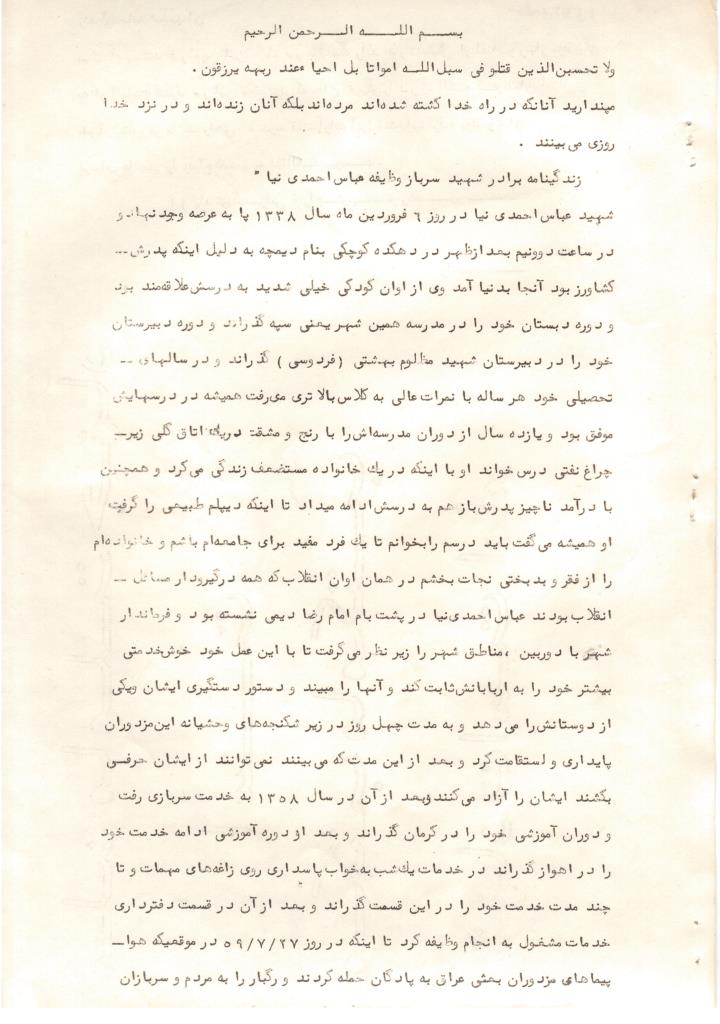 بسـم اللـه الـرحمن الرحیم
ولا تحسبن الذین قتلو فی سبل اللـه امواتا بل احیاء عند ربهه یرزقون .
مپندارید آنانکه در راه خدا کشته شده‌اند مرده‌اند بلکه آنان زنده‌اند و در نزد خدا
روزی می‌بینند .
زندگینامه برادر شهید سرباز وظیفه عباس احمدی نیا "
شهید عباس احمدی نیا در روز ٦ فروردین ماه سال ١٣٣٨ پا به عرصه وجود نهاد و
در ساعت دوونیم بعد ازظهر در دهکده کوچکی بنام دیمچه به دلیل اینکه پدرش ــ
کشاورز بود آنجا بدنیا آمد وی از اوان کودکی خیلی شدید به درسش علاقه‌مند بود
و دوره دبستان خود را در مدرسه همین شهر یعنی سپه گذراند و دوره دبیرستان
خود را در دبیرستان شهید مظلوم بهشتی (فردوسی) گذراند و در سالهای ــ
تحصیلی خود هر ساله با نمرات عالی به کلاس بالا تری می‌رفت همیشه در درسهایش
موفق بود و یازده سال از دوران مدرسه‌اش را با رنج و مشقت در یك اتاق گلی زیرــ
چراغ نفتی درس خواند او با اینکه در یك خانواده مستضعف زندگی می‌کرد و همچنین
با درآمد ناچیز پدرش باز هم به درسش ادامه میداد تا اینکه دیپلم طبیعی را گرفت
او همیشه می‌گفت باید درسم را بخوانم تا یك فرد مفید برای جامعه‌ام باشم و خانواده‌ام
را از فقر و بدبختی نجات بخشم در همان اوان انقلاب که همه درگیرودار مسائل ــ
انقلاب بودند عباس احمدی‌نیا در پشت بام امام رضا دیمی نشسته بود و فرماندار
شهر با دوربین ،مناطق شهر را زیر نظر می‌گرفت تا با این عمل خود خوش‌خدمتی
بیشتر خود را به اربابانش ثابت کند و آنها را میبند و دستور دستگیری ایشان ویکی
از دوستانش را می‌دهد و به مدت چهل روز در زیر شکنجه‌های وحشیانه این مزدوران
پایداری و استقامت کرد و بعد از این مدت که می‌بینند نمی‌توانند از ایشان حرفـی
بکشند ایشان را آزاد می‌کنند وبعد از آن در سال ١٣٥٨ به خدمت سربازی رفت
و دوران آموزشی خود را در کرمان گذراند و بعد از دوره آموزشی ادامه خدمت خود
را در اهواز گذراند در خدمات یك شب به‌خواب پاسداری روی زاغه‌های مهمات و تا
چند مدت خدمت خود را در این قسمت گذراند و بعد از آن در قسمت دفترداری
خدمات مشغول به انجام وظیفه کرد تا اینکه در روز ٥٩/٧/٢٧ در موقعیکه هواــ
پیماهای مزدوران بعثی عراق به پادگان حمله کردند و رگبار را به مردم و سربازان